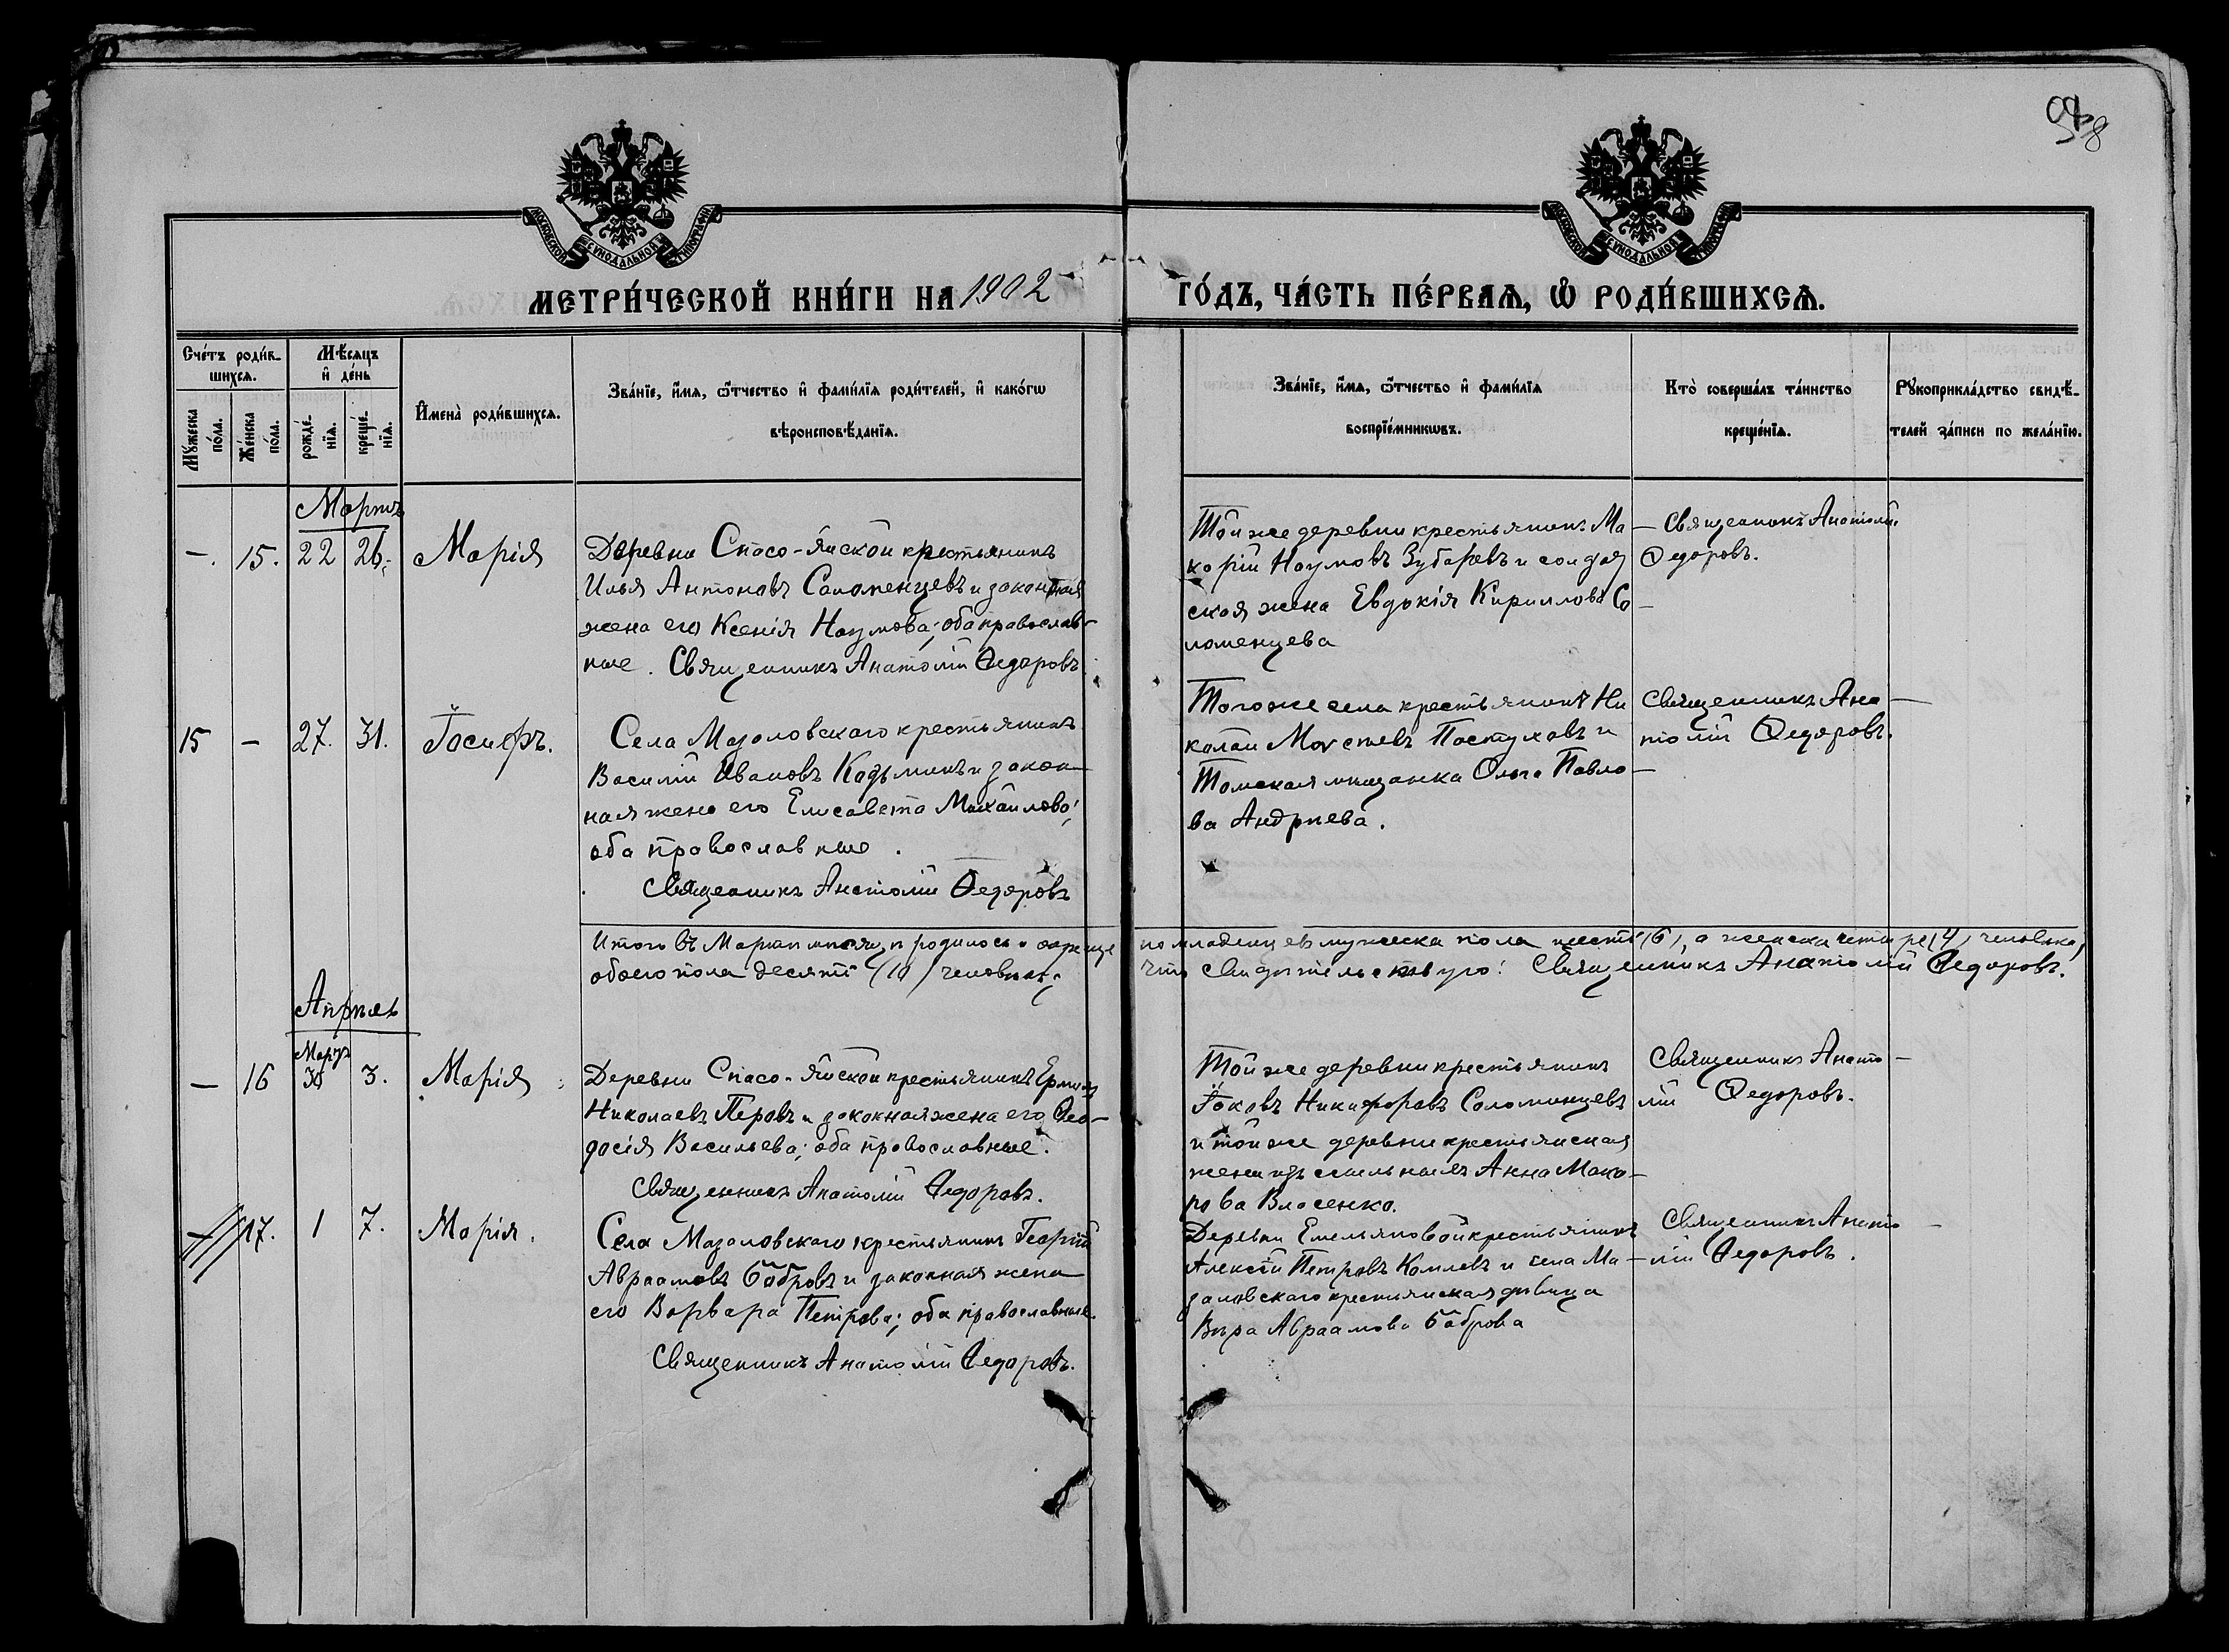 98
МОСКОВСКОЙ СУНОДАЛЬНОЙ ТИПОГРАФІИ
МОСКОВСКОЙ СУНОДАЛЬНОЙ ТИПОГРАФІИ
МЕТРИ́ЧЕСКОЙ КНИ́ГИ НА 1902
ГО́ДЪ, ЧА́СТЬ ПЕ́РВАѦ, Ѽ РОДИ́ВШИХСѦ.
Сче́тъ роди́в-
шихсѧ.
Мꙋ́жеска по́ла.
Же́нска по́ла.
Мѣ́сѧцъ
и҆ де́нь
рожде́-
нїѧ.
креще́-
нїѧ.
И҆мена̀ роди́вшихсѧ.
Зва́нїе, и҆́мѧ, ѻ҆́тчество и҆ фамилїѧ роди́телей, и҆ како́гѡ
вѣроисповѣ́данїѧ.
Зва́нїе, и҆́мѧ, ѻ҆́тчество и҆ фами́лїѧ
воспрїе́мникѡвъ.
Кто̀ соверша́лъ та́инство
креще́нїѧ.
Рꙋкоприкла́дство свидѣ́-
телей за́писи по жела́нїю.
Мартъ
—. 15. 22 26. Марія
Деревни Спасо-Яйской крестьянинъ
Илья Антоновъ Соломенцевъ и законная
жена его Ксенія Наумова; оба православ-
ные. Священникъ Анатолій Ѳедоровъ
Той же деревни крестьянинъ Ма-
карій Наумовъ Зубаревъ и солдат
ская жена Евдокія Кириллова Со-
ломенцева
Священникъ Анатолій
Ѳедоровъ.
15 — 27. 31. Іосифъ.
Села Мазаловскаго крестьянинъ
Василій Ивановъ Кадзьминъ и закон-
ная жена его Елисавета Михайлова;
оба православные.
Священникъ Анатолій Ѳедоровъ
Того же села крестьянинъ Ни
колай Моѵсеевъ Пастуховъ и
Томская мѣщанка Ольга Павло-
ва Андреева.
Священникъ Ана-
толій Ѳедоровъ.
Итого въ Мартѣ мѣсяцѣ родилось и окреще но младенцевъ мужеска пола шесть (6), а женска четыре (4) человѣка,
обоего пола десять (10) человѣкъ; что свидѣтельствую: Священникъ Анатолій Ѳедоровъ.
Апрѣль
Мартъ
— 16 30 3. Марія
Деревни Спасо-Яйской крестьянинъ Ермилъ
Николаевъ Перовъ и законная жена его Ѳео-
досія Васильева; оба православные.
Священникъ Анатолій Ѳедоровъ.
Той же деревни крестьянинъ
Іаковъ Никифоровъ Соломенцевъ
и той же деревни крестьянская
жена изъ ссыльныхъ Анна Мака-
рова Власенко.
Священникъ Анато-
лій Ѳедоровъ.
— 17. 1 7. Марія.
Села Мазаловскаго крестьянинъ Георгій
Авраамовъ Бобровъ и законная жена
его Варвара Петрова; оба православные.
Священникъ Анатолій Ѳедоровъ.
Деревни Емельяновой крестьянинъ
Алексій Петровъ Комлевъ и села Ма-
заловскаго крестьянская дѣвица
Вѣра Авраамова Боброва
Священникъ Анато-
лій Ѳедоровъ.